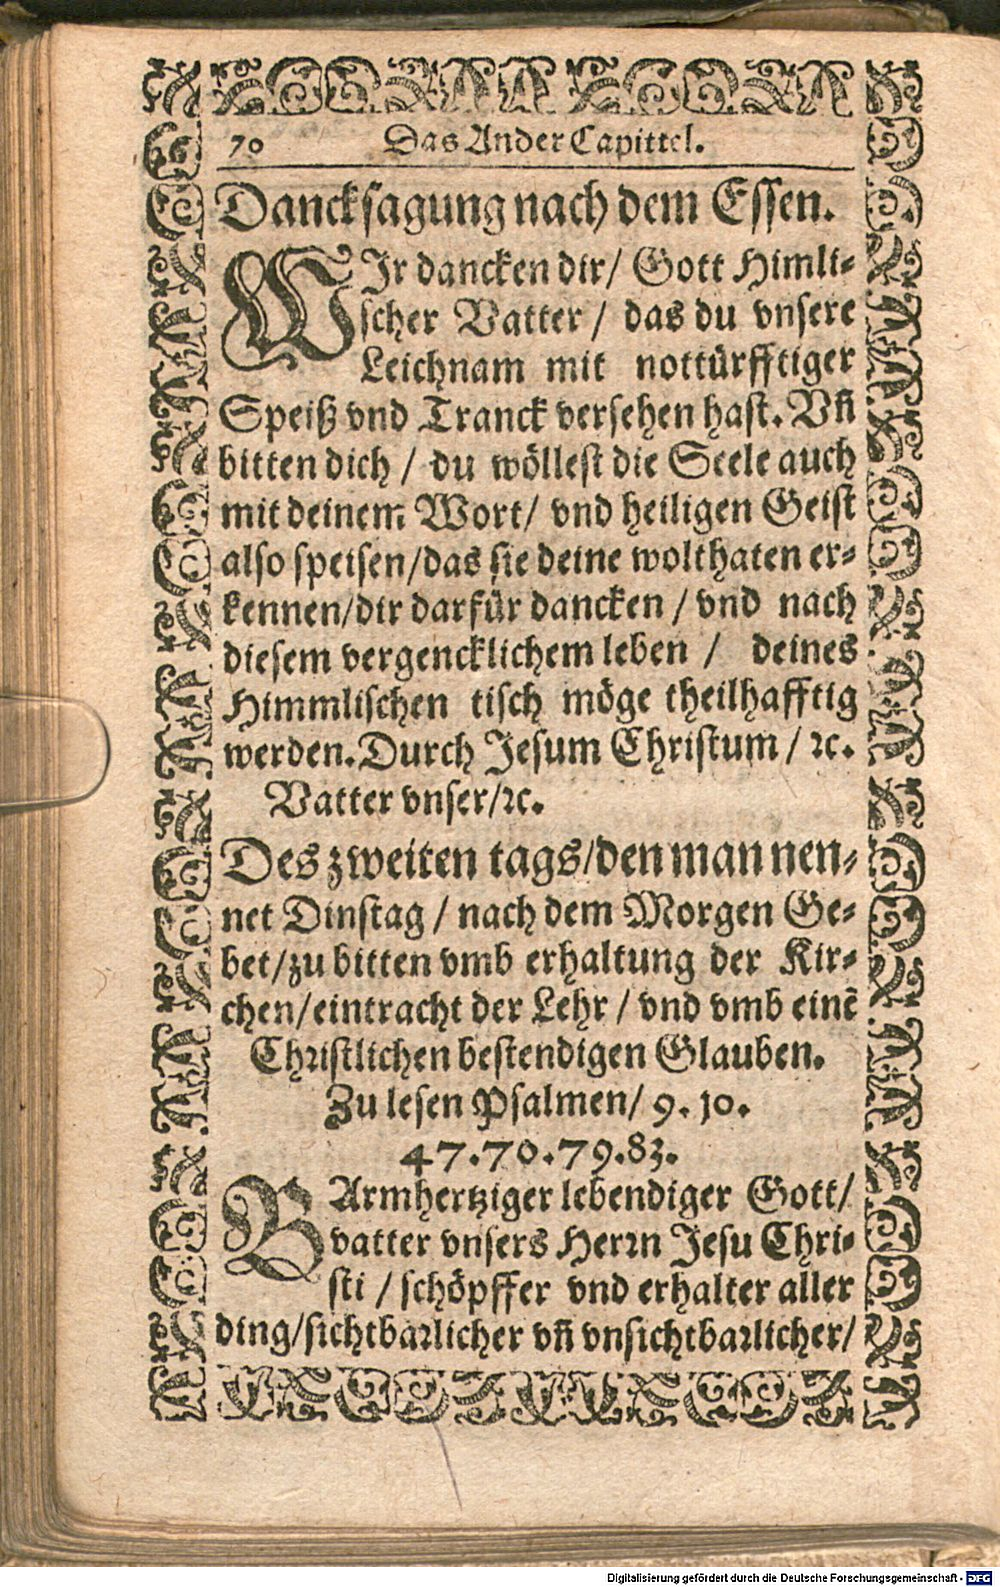 70 Das Ander Capittel.
Dancksagung nach dem Essen.
WIr dancken dir/ Gott Himli-
scher Vatter / das du vnsere
Leichnam mit nottürfftiger
Speiß vnd Tranck versehen hast. Vñ
bitten dich / du wöllest die Seele auch
mit deinem Wort/ vnd heiligen Geist
also speisen/das sie deine wolthaten er-
kennen/dir darfür dancken / vnd nach
diesem vergencklichem leben / deines
Himmlischen tisch möge theilhafftig
werden. Durch Jesum Christum / ꝛc.
Vatter vnser/ꝛc.
Des zweiten tags/den man nen-
net Dinstag / nach dem Morgen Ge-
bet/zu bitten vmb erhaltung der Kir-
chen/eintracht der Lehr / vnd vmb einẽ
Christlichen bestendigen Glauben.
Zu lesen Psalmen/ 9. 10.
47.70.79.83.
BArmhertziger lebendiger Gott/
vatter vnsers Herrn Jesu Chri-
sti / schöpffer vnd erhalter aller
ding/sichtbarlicher vñ vnsichtbarlicher/
Digitalisierung gefördert durch die Deutsche Forschungsgemeinschaft - DFG